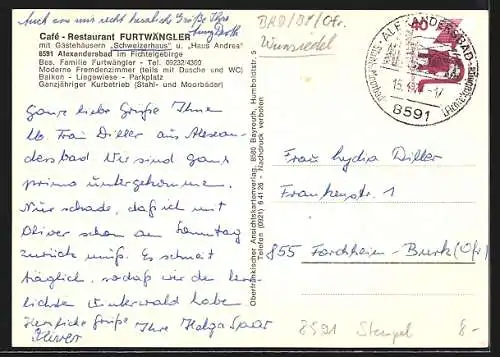 Auch von mir recht herzliche Grüße Ihre
BRD/DF/Ofr.
Wunsiedel
Café - Restaurant FURTWÄNGLER
mit Gästehäusern „Schweizerhaus" u. „Haus Andrea"
8591 Alexandersbad im Fichtelgebirge
Bes. Familie Furtwängler - Tel. 09232/4360
Moderne Fremdenzimmer (teils mit Dusche und WC)
Balkon - Liegewiese - Parkplatz
Ganzjähriger Kurbetrieb (Stahl- und Moorbäder)
Ganz liebe Grüße Ihnen
lb. Frau Diller aus Alexan-
dersbad. Wir sind ganz
prima untergekommen.
Nur schade, daß ich mit
Oliver schon am Sonntag
zurück muß. Es schneit
täglich, sodaß wir den herr-
lichsten Winterwald haben
Herzliche Grüße Ihre Helga Saar
Oliver
Oberfränkischer Ansichtskartenverlag, 8580 Bayreuth, Humboldtstr. 5
Telefon (0921) 6 41 26 - Nachdruck verboten
40
ALEXANDERSBAD
8591
Frau Lydia Diller
Frankenstr. 1
855 Forchheim-Burk (Ofr)
8591 Stempel
8-